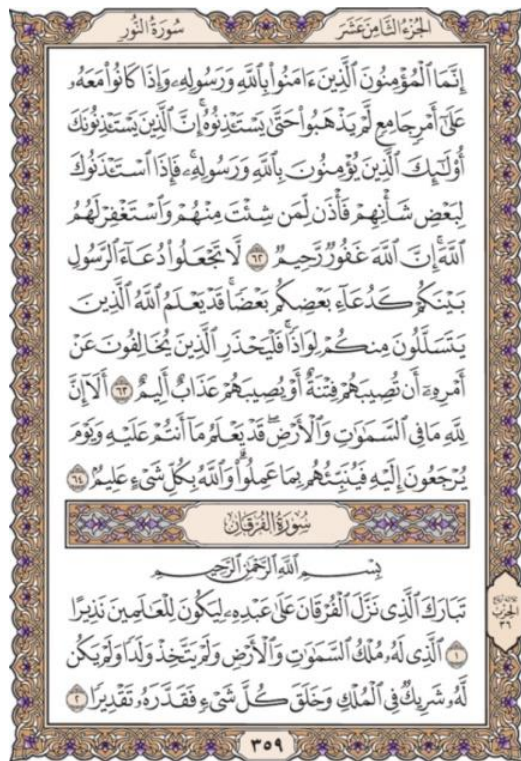 الجُزْءُ الثَّامِنَ عَشَرَ سُورَةُ النُّورِ
إِنَّمَا ٱلْمُؤْمِنُونَ ٱلَّذِينَ ءَامَنُوا۟ بِٱللَّهِ وَرَسُولِهِۦ وَإِذَا كَانُوا۟ مَعَهُۥ
عَلَىٰٓ أَمْرٍ جَامِعٍ لَّمْ يَذْهَبُوا۟ حَتَّىٰ يَسْتَـْٔذِنُوهُ ۚ إِنَّ ٱلَّذِينَ يَسْتَـْٔذِنُونَكَ
أُو۟لَـٰٓئِكَ ٱلَّذِينَ يُؤْمِنُونَ بِٱللَّهِ وَرَسُولِهِۦ ۚ فَإِذَا ٱسْتَـْٔذَنُوكَ
لِبَعْضِ شَأْنِهِمْ فَأْذَن لِّمَن شِئْتَ مِنْهُمْ وَٱسْتَغْفِرْ لَهُمُ
ٱللَّهَ ۚ إِنَّ ٱللَّهَ غَفُورٌ رَّحِيمٌ ٦٢ لَّا تَجْعَلُوا۟ دُعَآءَ ٱلرَّسُولِ
بَيْنَكُمْ كَدُعَآءِ بَعْضِكُم بَعْضًا ۚ قَدْ يَعْلَمُ ٱللَّهُ ٱلَّذِينَ
يَتَسَلَّلُونَ مِنكُمْ لِوَاذًا ۚ فَلْيَحْذَرِ ٱلَّذِينَ يُخَالِفُونَ عَنْ
أَمْرِهِۦٓ أَن تُصِيبَهُمْ فِتْنَةٌ أَوْ يُصِيبَهُمْ عَذَابٌ أَلِيمٌ ٦٣ أَلَآ إِنَّ
لِلَّهِ مَا فِى ٱلسَّمَـٰوَٰتِ وَٱلْأَرْضِ ۖ قَدْ يَعْلَمُ مَآ أَنتُمْ عَلَيْهِ وَيَوْمَ
يُرْجَعُونَ إِلَيْهِ فَيُنَبِّئُهُم بِمَا عَمِلُوا۟ ۗ وَٱللَّهُ بِكُلِّ شَىْءٍ عَلِيمٌۢ ٦٤
سُورَةُ الْفُرْقَانِ
بِسْمِ ٱللَّهِ ٱلرَّحْمَـٰنِ ٱلرَّحِيمِ
تَبَارَكَ ٱلَّذِى نَزَّلَ ٱلْفُرْقَانَ عَلَىٰ عَبْدِهِۦ لِيَكُونَ لِلْعَـٰلَمِينَ نَذِيرًا
١ ٱلَّذِى لَهُۥ مُلْكُ ٱلسَّمَـٰوَٰتِ وَٱلْأَرْضِ وَلَمْ يَتَّخِذْ وَلَدًا وَلَمْ يَكُن
لَّهُۥ شَرِيكٌ فِى ٱلْمُلْكِ وَخَلَقَ كُلَّ شَىْءٍ فَقَدَّرَهُۥ تَقْدِيرًا ٢
الحِزْب
٣٦
٣٥٩